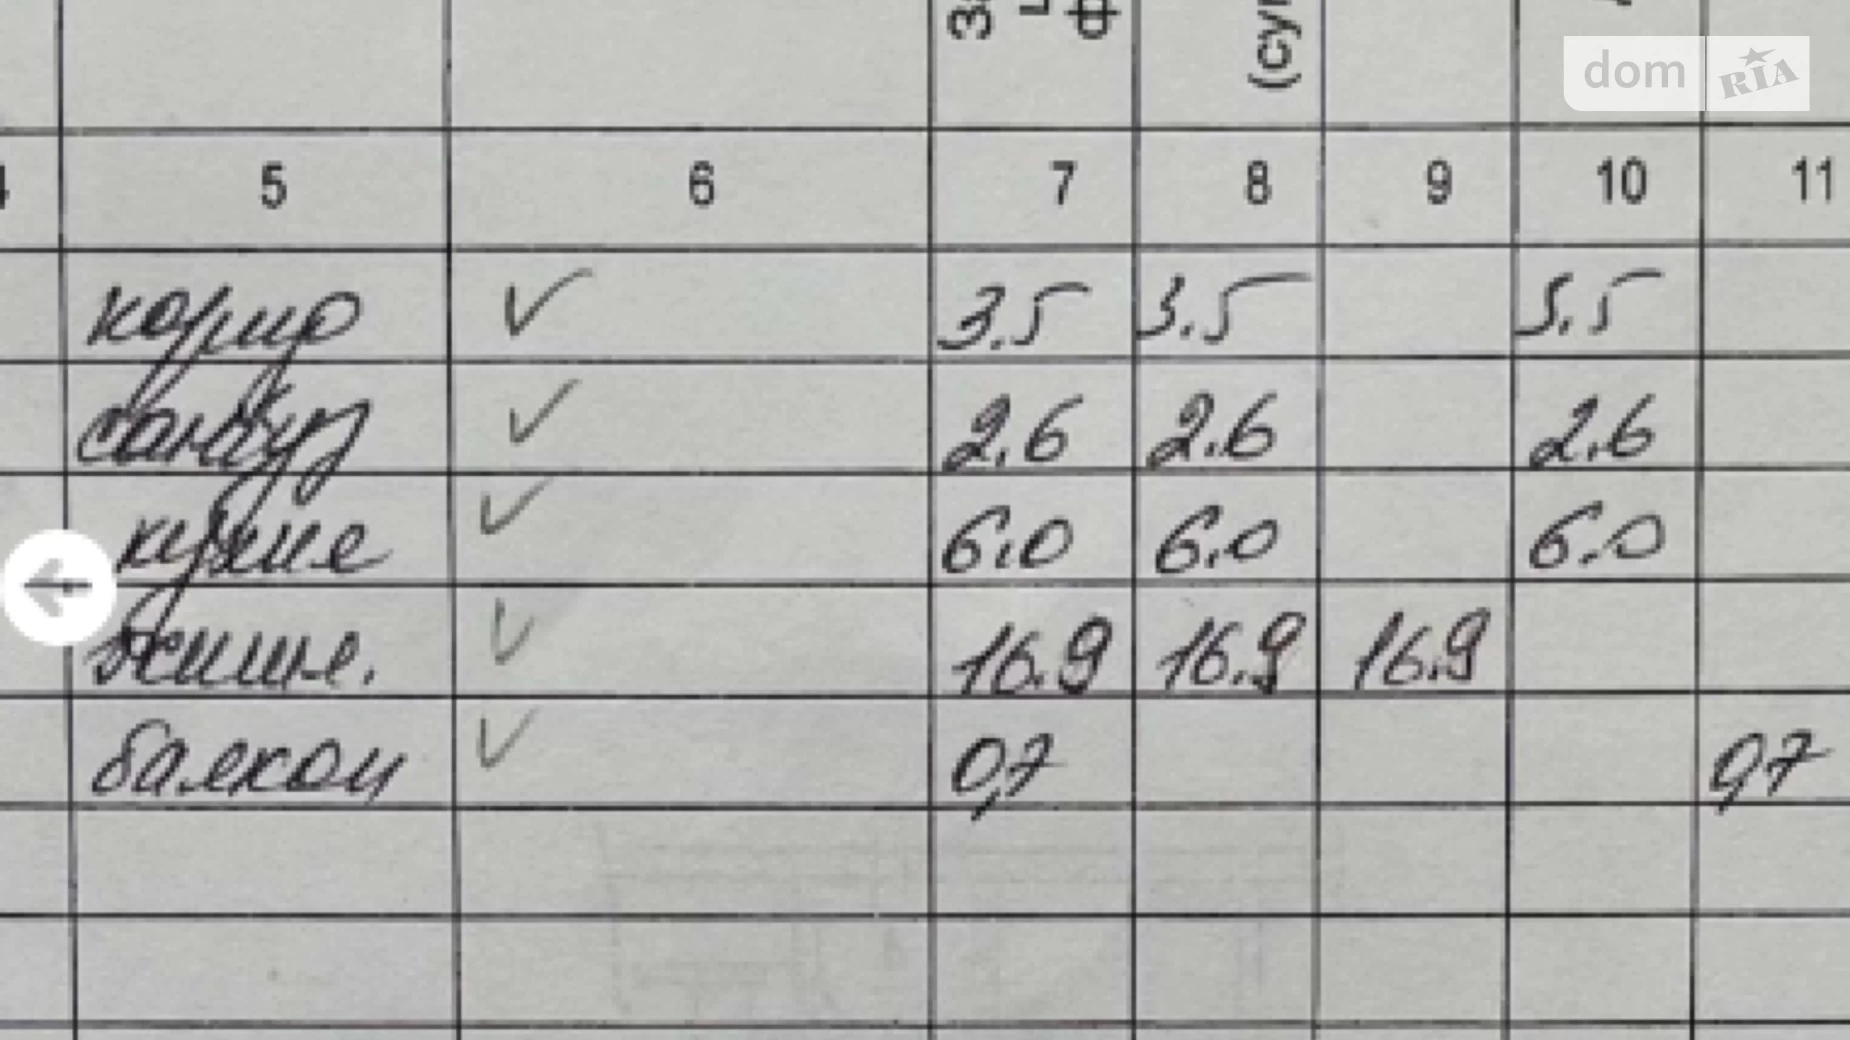 (су
dom RIA
4 5 6 7 8 9 10 11
коридор ✓ 3.5 3.5 3.5
санвуз ✓ 2.6 2.6 2.6
кухне ✓ 6.0 6.0 6.0
жишл. ✓ 16.9 16.9 16.9
балкон ✓ 0,7 0,7